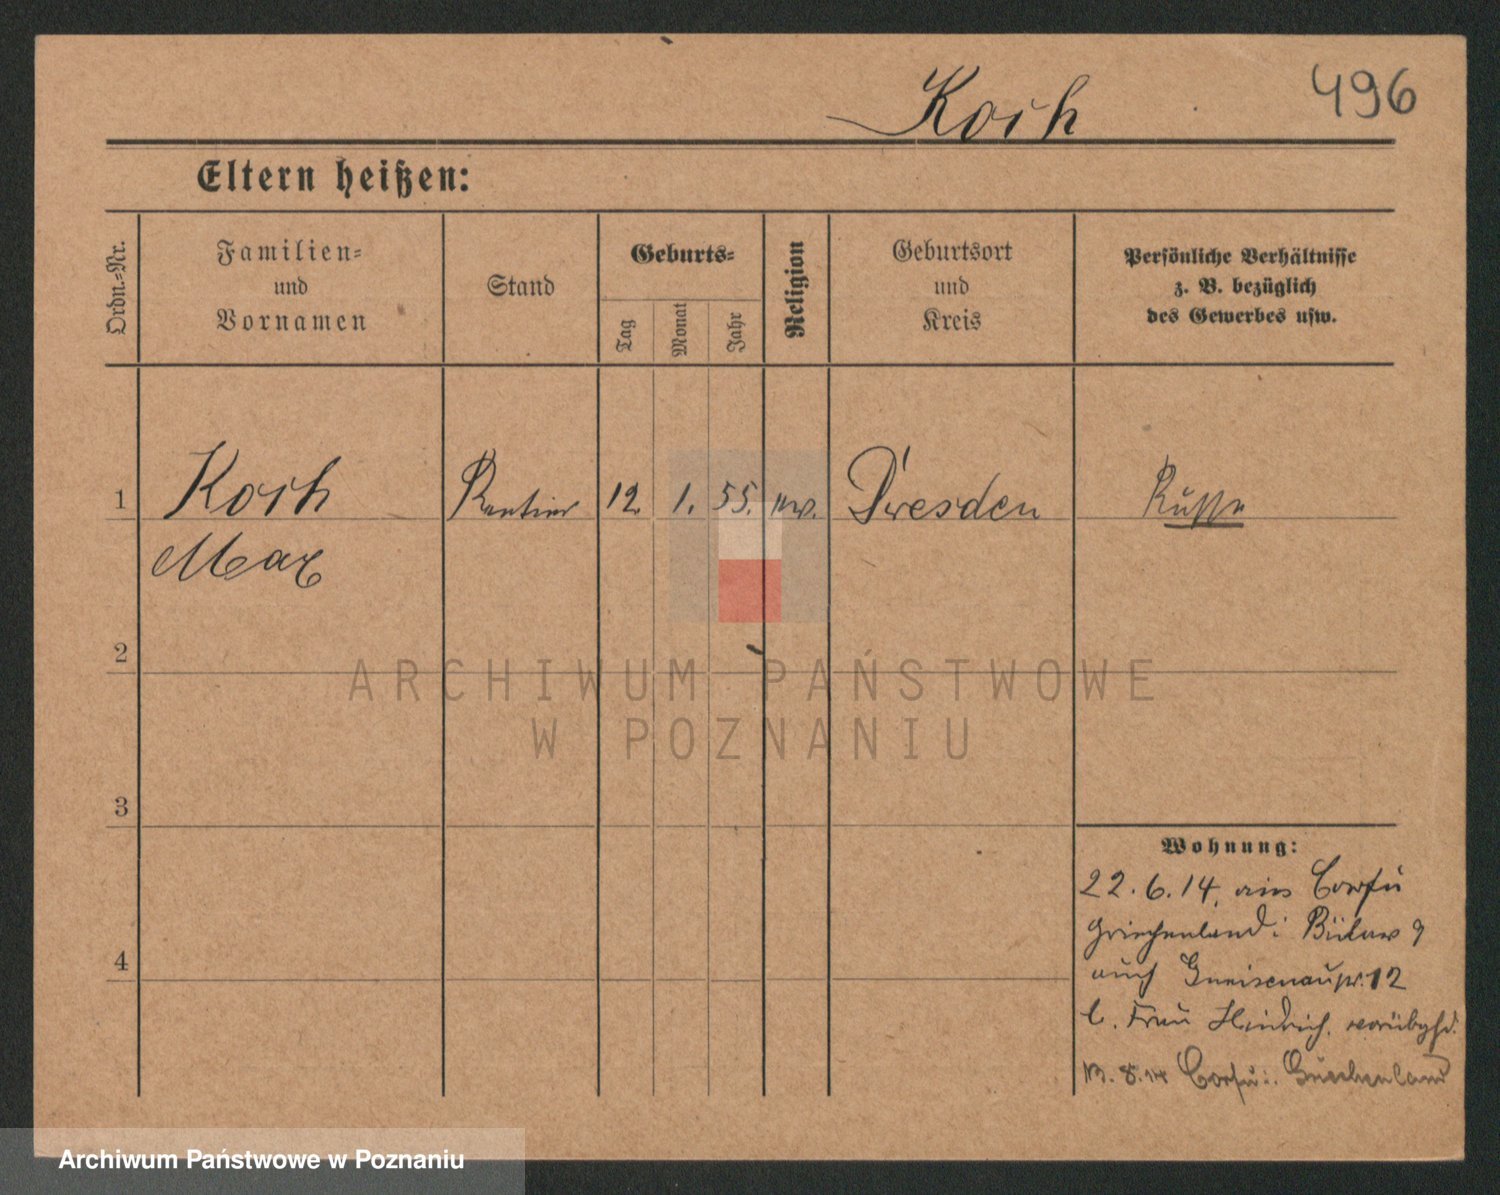 496
Koch
Eltern heißen:
Ordn.-Nr.
Familien-
und
Vornamen
Stand
Geburts-
Tag
Monat
Jahr
Religion
Geburtsort
und
Kreis
Persönliche Verhältnisse
z. B. bezüglich
des Gewerbes usw.
1
Koch
Max
Rentier
12.
1.
55.
Dresden
Russe
2
ARCHIWUM PAŃSTWOWE
W POZNANIU
3
4
Wohnung:
22.6.14. aus Corfu
Griechenland: Bülow 9
auch Gneisenaustr. 12
b. Frau Heidrich. vorübghd.
8.14 Corfu: Griechenland
Archiwum Państwowe w Poznaniu